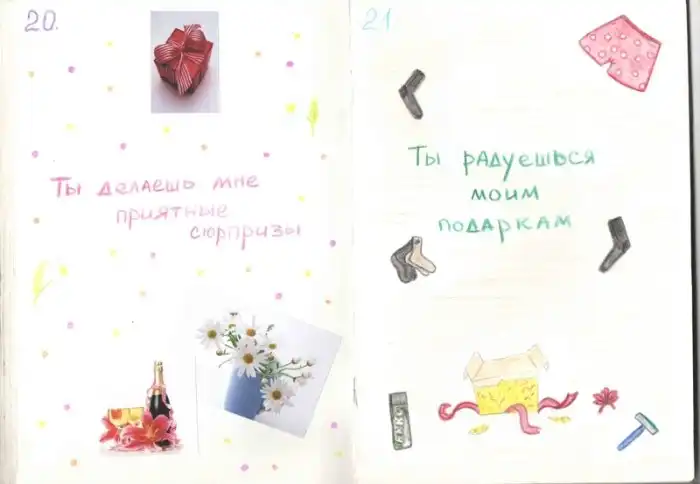 20.
Ты делаешь мне
приятные
сюрпризы
21.
Ты радуешься
моим
подаркам